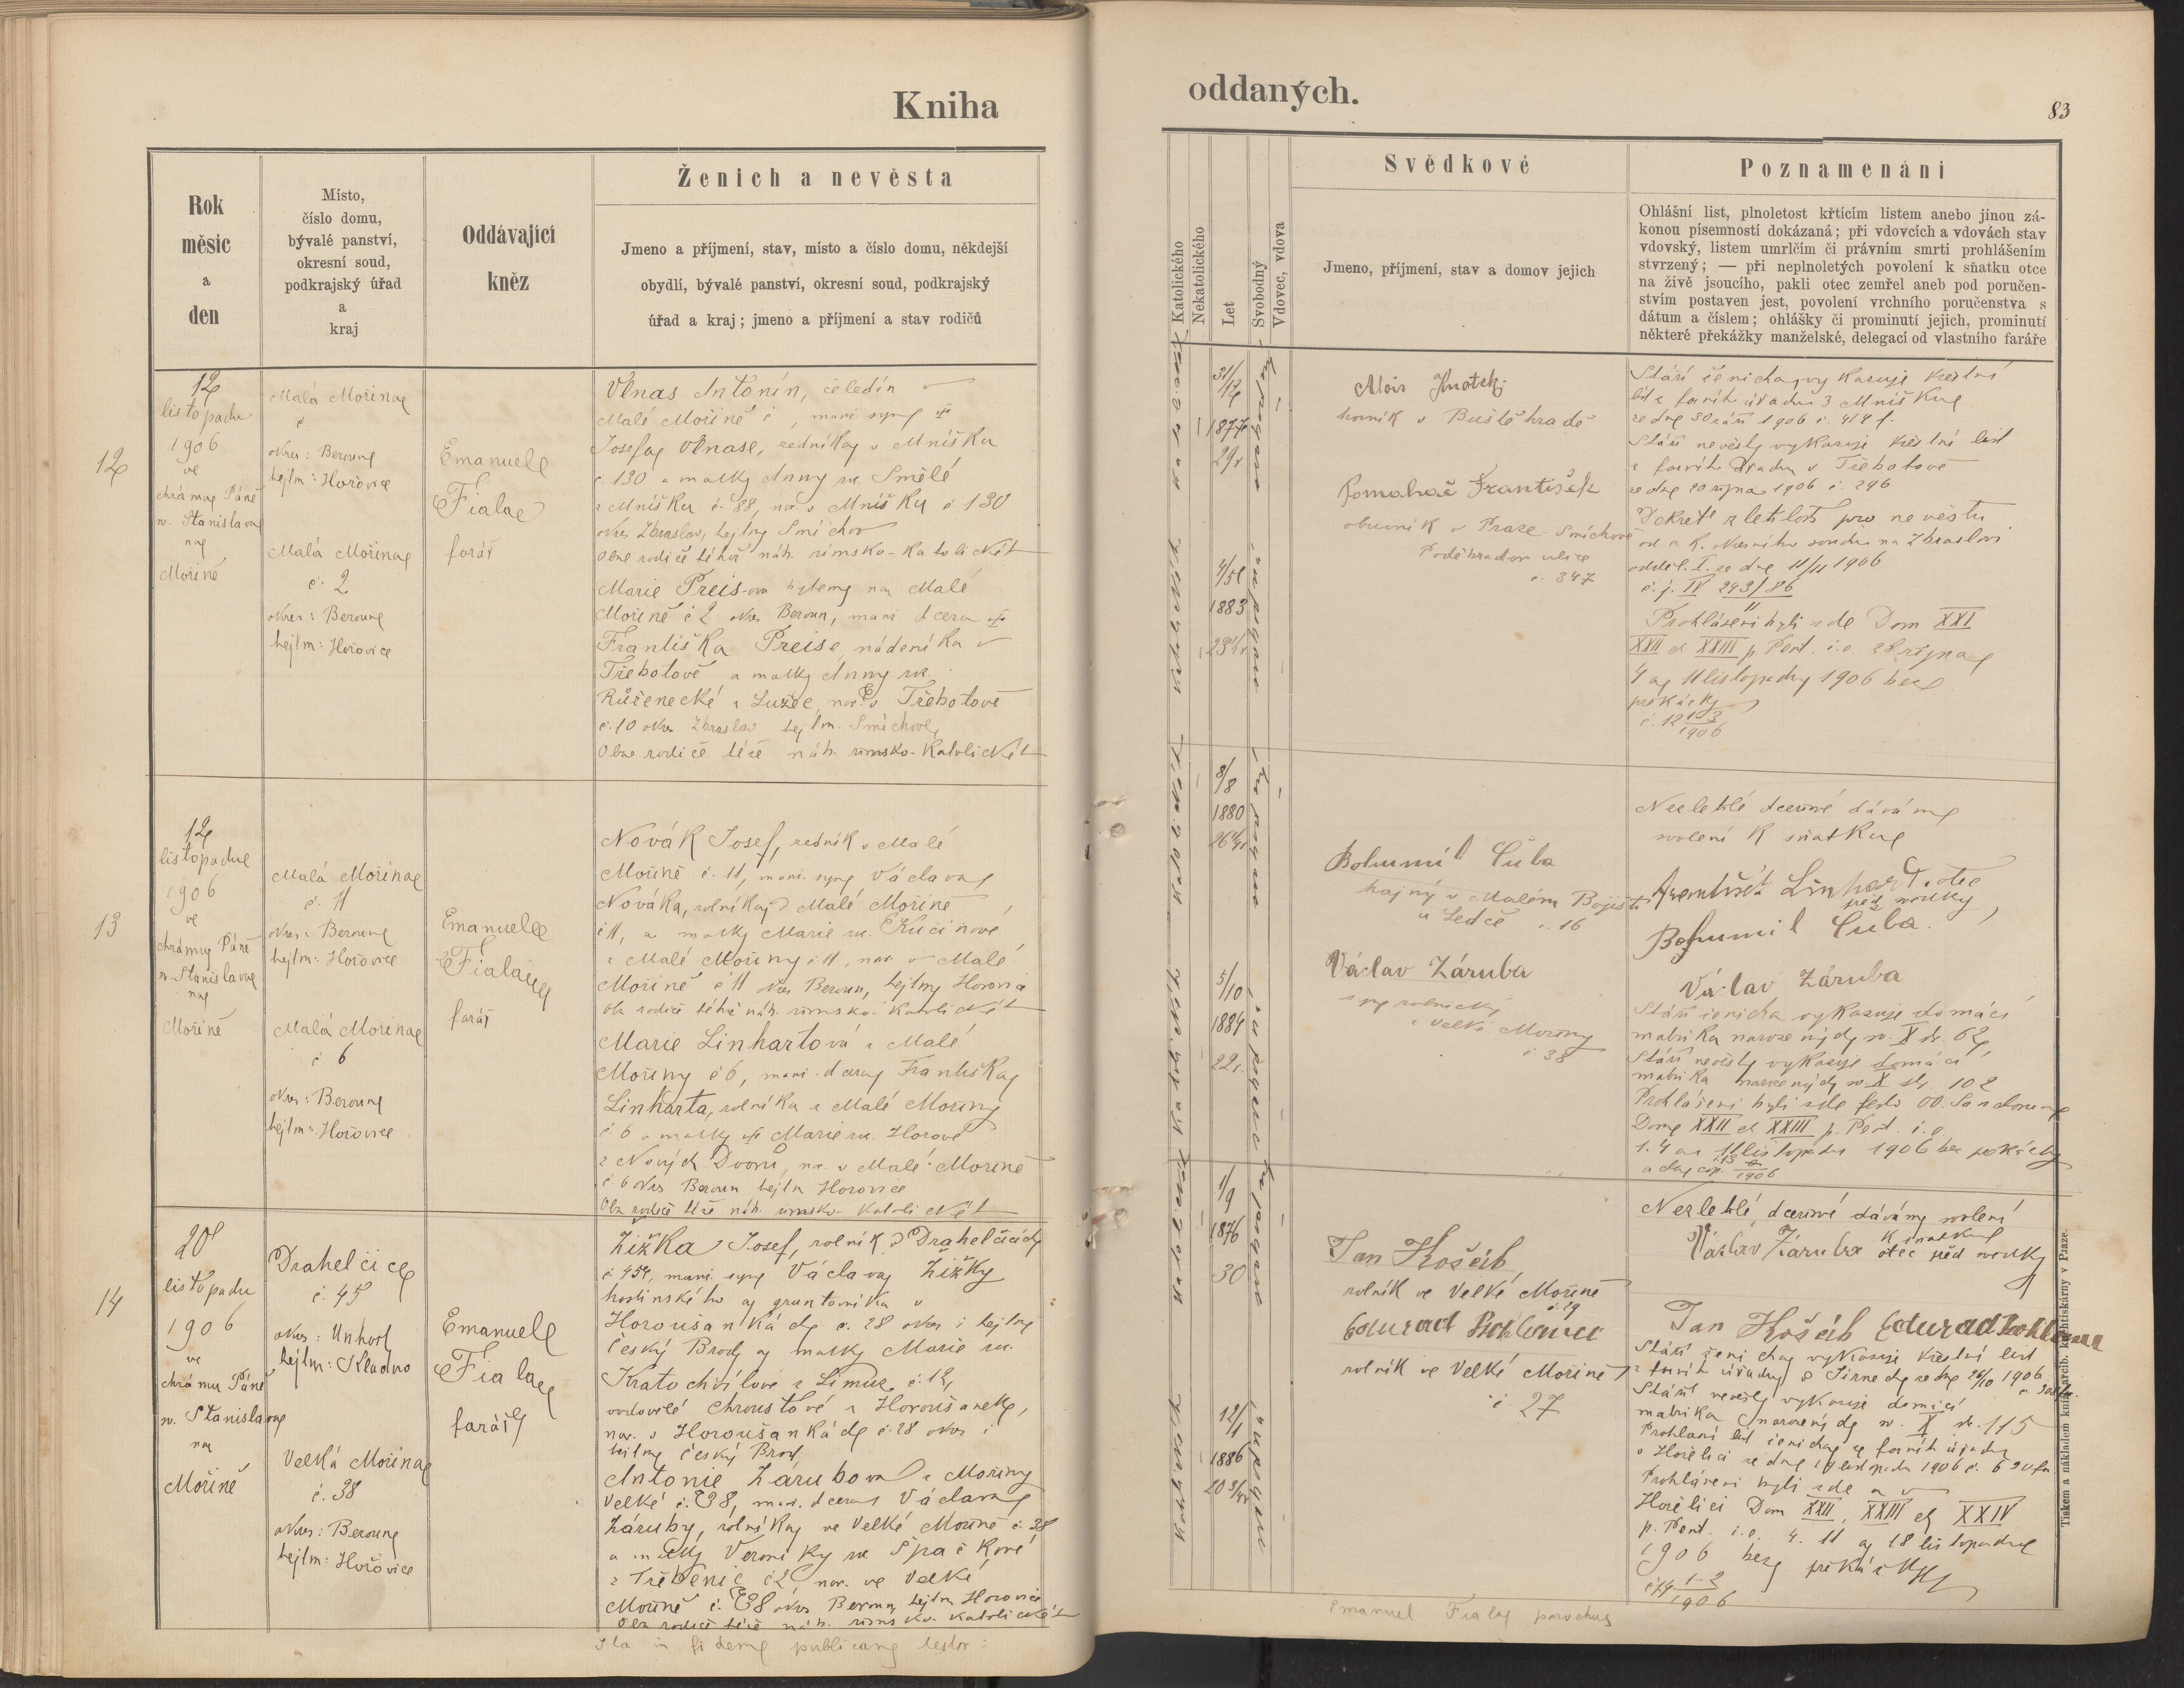 Kniha
oddaných.
83
Rok
měsíc
a
den
Místo,
číslo domu,
bývalé panství,
okresní soud,
podkrajský úřad
a
kraj
Oddávající
kněz
Ženich a nevěsta
Jmeno a příjmení, stav, místo a číslo domu, někdejší
obydlí, bývalé panství, okresní soud, podkrajský
úřad a kraj; jmeno a příjmení a stav rodičů
Katolického
Nekatolického
Let
Svobodný
Vdovec, vdova
Svědkové
Jmeno, příjmení, stav a domov jejich
Poznamenání
Ohlášní list, plnoletost křtícím listem anebo jinou zá-
konou písemností dokázaná; při vdovcích a vdovách stav
vdovský, listem umrlčím či právním smrti prohlášením
stvrzený; — při neplnoletých povolení k sňatku otce
na živě jsoucího, pakli otec zemřel aneb pod poručen-
stvím postaven jest, povolení vrchního poručenstva s
dátum a číslem; ohlášky či prominutí jejich, prominutí
některé překážky manželské, delegací od vlastního faráře
12
12
listopadu
1906
ve
chrámu Páně
sv. Stanislava
na
Mořině
Malá Mořina
č
okres: Beroun
hejtm: Hořovice
Malá Mořina
č. 2
okres: Beroun
hejtm: Hořovice
Emanuel
Fiala
farář
Vlnas Antonín, čeledín v
Malé Mořině č , manž. syn
Josefa Vlnase, zedníka v Mníšku
č. 130 a matky Anny roz. Smělé
z Mníšku č. 88, nar. v Mníšku č. 130
okres Zbraslav, hejtm. Smíchov
Oba rodiče téhož náb. římsko-katolického
Marie Preis-ová bytem na Malé
Mořině č 2 okres Beroun, manž. dcera
Františka Preise, nádeníka v
Třebotově a matky Anny roz.
Růženecké z Lužce, nar. v Třebotově
č. 10 okres Zbraslav hejtm. Smíchov
Oba rodiče též náb. římsko-katolického
31/12
1877
29r.
4/5
1883
23½r
Katolického
Svobodný
Katolického
Svobodná
Alois Knotek
horník v Buštěhradě
Pomahač František
obuvník v Praze Smíchově
Poděbradova ulice
č. 347
Stáří ženicha vykazuje křestní
list z farního úřadu z Mníšku
ze dne 30 září 1906 č. 414 f.
Stáří nevěsty vykazuje křestní list
z farního úřadu v Třebotově
ze dne 20 října 1906 č. 296
Dekret zletilosti pro nevěstu
od c. k. okresního soudu na Zbraslavi
odděl. I. ze dne 11/11 1906
č. j. IV 243/86
11
Prohlášeni byli zde Dom XXI
XXII et XXIII p. Pent. i.e. 28 října
4 a 11 listopadu 1906 bez
překážky
č. 12 1-3
1906
13
12
listopadu
1906
ve
chrámu Páně
sv. Stanislava
na
Mořině
Malá Mořina
č. 11
okres: Beroun
hejtm: Hořovice
Malá Mořina
č 6
okres: Beroun
hejtm: Hořovice
Emanuel
Fiala
farář
Novák Josef, zedník v Malé
Mořině č. 11, manž. syn Václava
Nováka, rolníka z Malé Mořině
č 11, a matky Marie roz. Kučinové
z Malé Mořiny č 11, nar. v Malé
Mořině č 11 okres Beroun, hejtm Hořovice
Oba rodiče téhož náb. římsko-katolického
Marie Linhartová z Malé
Mořiny č 6, manž. dcera Františka
Linharta, rolníka z Malé Mořiny
č. 6 a matky Marie roz. Horové
z Nových Dvorů, nar. v Malé Mořině
č 6 okres Beroun hejtm Hořovice
Oba rodiče též náb. římsko-katolického
8/8
1880
26¼r
5/10
1884
22r.
Katolického
Svobodný
Katolického
Svobodná
Bohumil Čuba
hajný v Malém Bojišti
u Ledče č. 16
Václav Záruba
syn rolnický
z Velké Mořiny
č 38
Nezletilé dceři své dávám
svolení k sňatku
František Linhart, otec
před svědky
Bohumil Čuba.
Václav Záruba
Stáří ženicha vykazuje domácí
matrika narozených sv. X str. 62
Stáří nevěsty vykazuje domácí
matrika narozených sv X str. 102
Prohlášeni byli zde festo OO. Sanctorum
Dom XXII et XXIII p. Pent. i.e.
1. 4 a 11 listopadu 1906 bez překážky
1906
14
20
listopadu
1906
ve
chrámu Páně
sv. Stanislava
na
Mořině
Drahelčice
č. 45
okres: Unhošť
hejtm: Kladno
Velká Mořina
č. 38
okres: Beroun
hejtm: Hořovice
Emanuel
Fiala
farář
Žižka Josef, rolník z Drahelčic
č 45, manž. syn Václava Žižky
hostinského a gruntovníka v
Horoušankách č. 28 okres i hejtm
Český Brod a matky Marie roz.
Kratochvílové z Limuz č. 12,
ovdovělé Chroustové z Horoušanek,
nar. v Horoušankách č. 28 okres i
hejtm Český Brod
Antonie Zárubova z Mořiny
Velké č. 38, manž. dcera Václava
Záruby, rolníka ve Velké Mořině č. 38
a matky Veroniky roz Špačkové
z Třebenic č 2 nar. ve Velké
Mořině č. 38 okres Beroun, hejtm Hořovice
Oba rodiče též náb. římsko-katolického
1/9
1876
30
12/1
1886
20 3/4r
Katolického
Svobodný
Katolického
Svobodná
Jan Košťáb
rolník ve Velké Mořině
č. 19
rolník ve Velké Mořině
č. 27
Nezletilé dceři své dávám svolení
k sňatku
Václav Záruba otec před svědky
Jan Košťáb
Stáří ženicha vykazuje křestní list
Stáří nevěsty vykazuje domácí
matrika narozených sv. X str. 115
Prohlášeni byli zde a v
Hořelici Dom XXII, XXIII et XXIV
p. Pent. i.e. 4. 11 a 18 listopadu
1906 bez překážky
č 14 1-3
1906
Ita in fidem publicam testor:
Emanuel Fiala parochus
Tiskem a nákladem kníž. arcib. knihtiskárny v Praze.